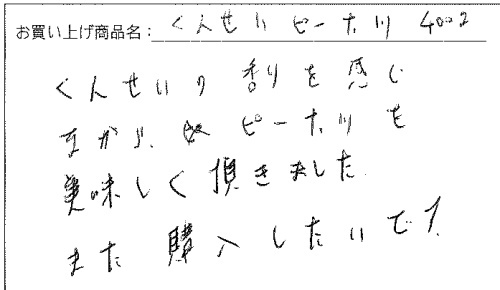 お買い上げ商品名：くんせいピーナツ 400g
くんせいの香りを感じ
ながら、ピーナツを
美味しく頂きました。
また購入したいです。